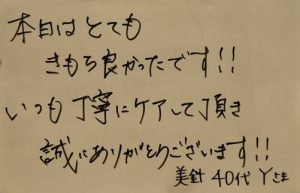 本日はとても
きもち良かったです!!
いつも丁寧にケアして頂き
誠にありがとうございます!!
美針 40代 Yさま